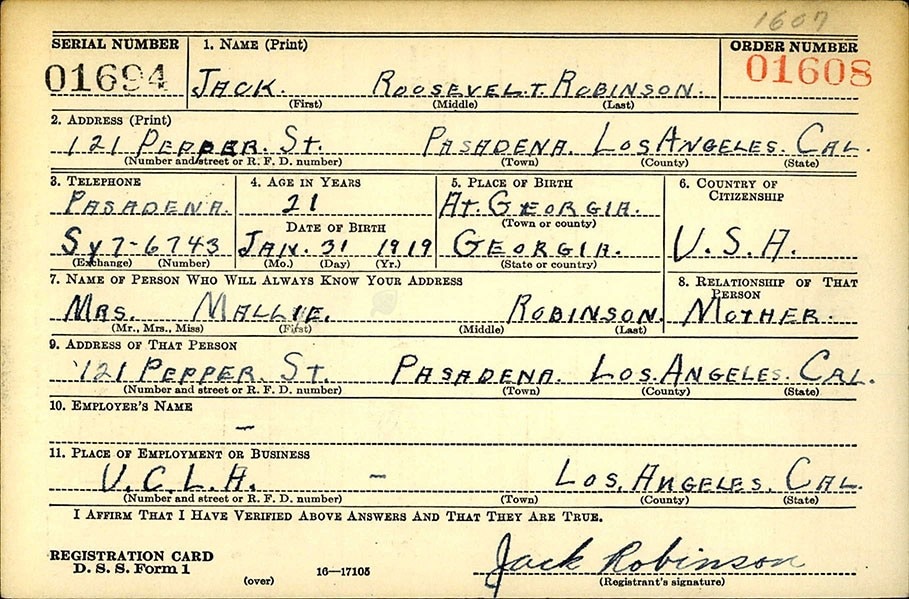 1607
SERIAL NUMBER 1. NAME (Print) ORDER NUMBER
01694 JACK. ROOSEVELT. ROBINSON. 01608
(First) (Middle) (Last)
2. ADDRESS (Print)
121 PEPPER. ST. PASADENA. LOS ANGELES. CAL.
(Number and street or R. F. D. number) (Town) (County) (State)
3. TELEPHONE 4. AGE IN YEARS 5. PLACE OF BIRTH 6. COUNTRY OF
CITIZENSHIP
PASADENA. 21 AT. GEORGIA.
DATE OF BIRTH (Town or county)
SY7-6743 JAN. 31 1919 GEORGIA. U.S.A.
(Exchange) (Number) (Mo.) (Day) (Yr.) (State or country)
7. NAME OF PERSON WHO WILL ALWAYS KNOW YOUR ADDRESS 8. RELATIONSHIP OF THAT
PERSON
MRS. MALLIE. ROBINSON. MOTHER.
(Mr., Mrs., Miss) (First) (Middle) (Last)
9. ADDRESS OF THAT PERSON
121 PEPPER. ST. PASADENA. LOS. ANGELES. CAL.
(Number and street or R. F. D. number) (Town) (County) (State)
10. EMPLOYER'S NAME
—
11. PLACE OF EMPLOYMENT OR BUSINESS
U.C.L.A. – LOS. ANGELES. CAL.
(Number and street or R. F. D. number) (Town) (County) (State)
I AFFIRM THAT I HAVE VERIFIED ABOVE ANSWERS AND THAT THEY ARE TRUE.
REGISTRATION CARD
D. S. S. Form 1 Jack Robinson
(over) 16—17105 (Registrant's signature)